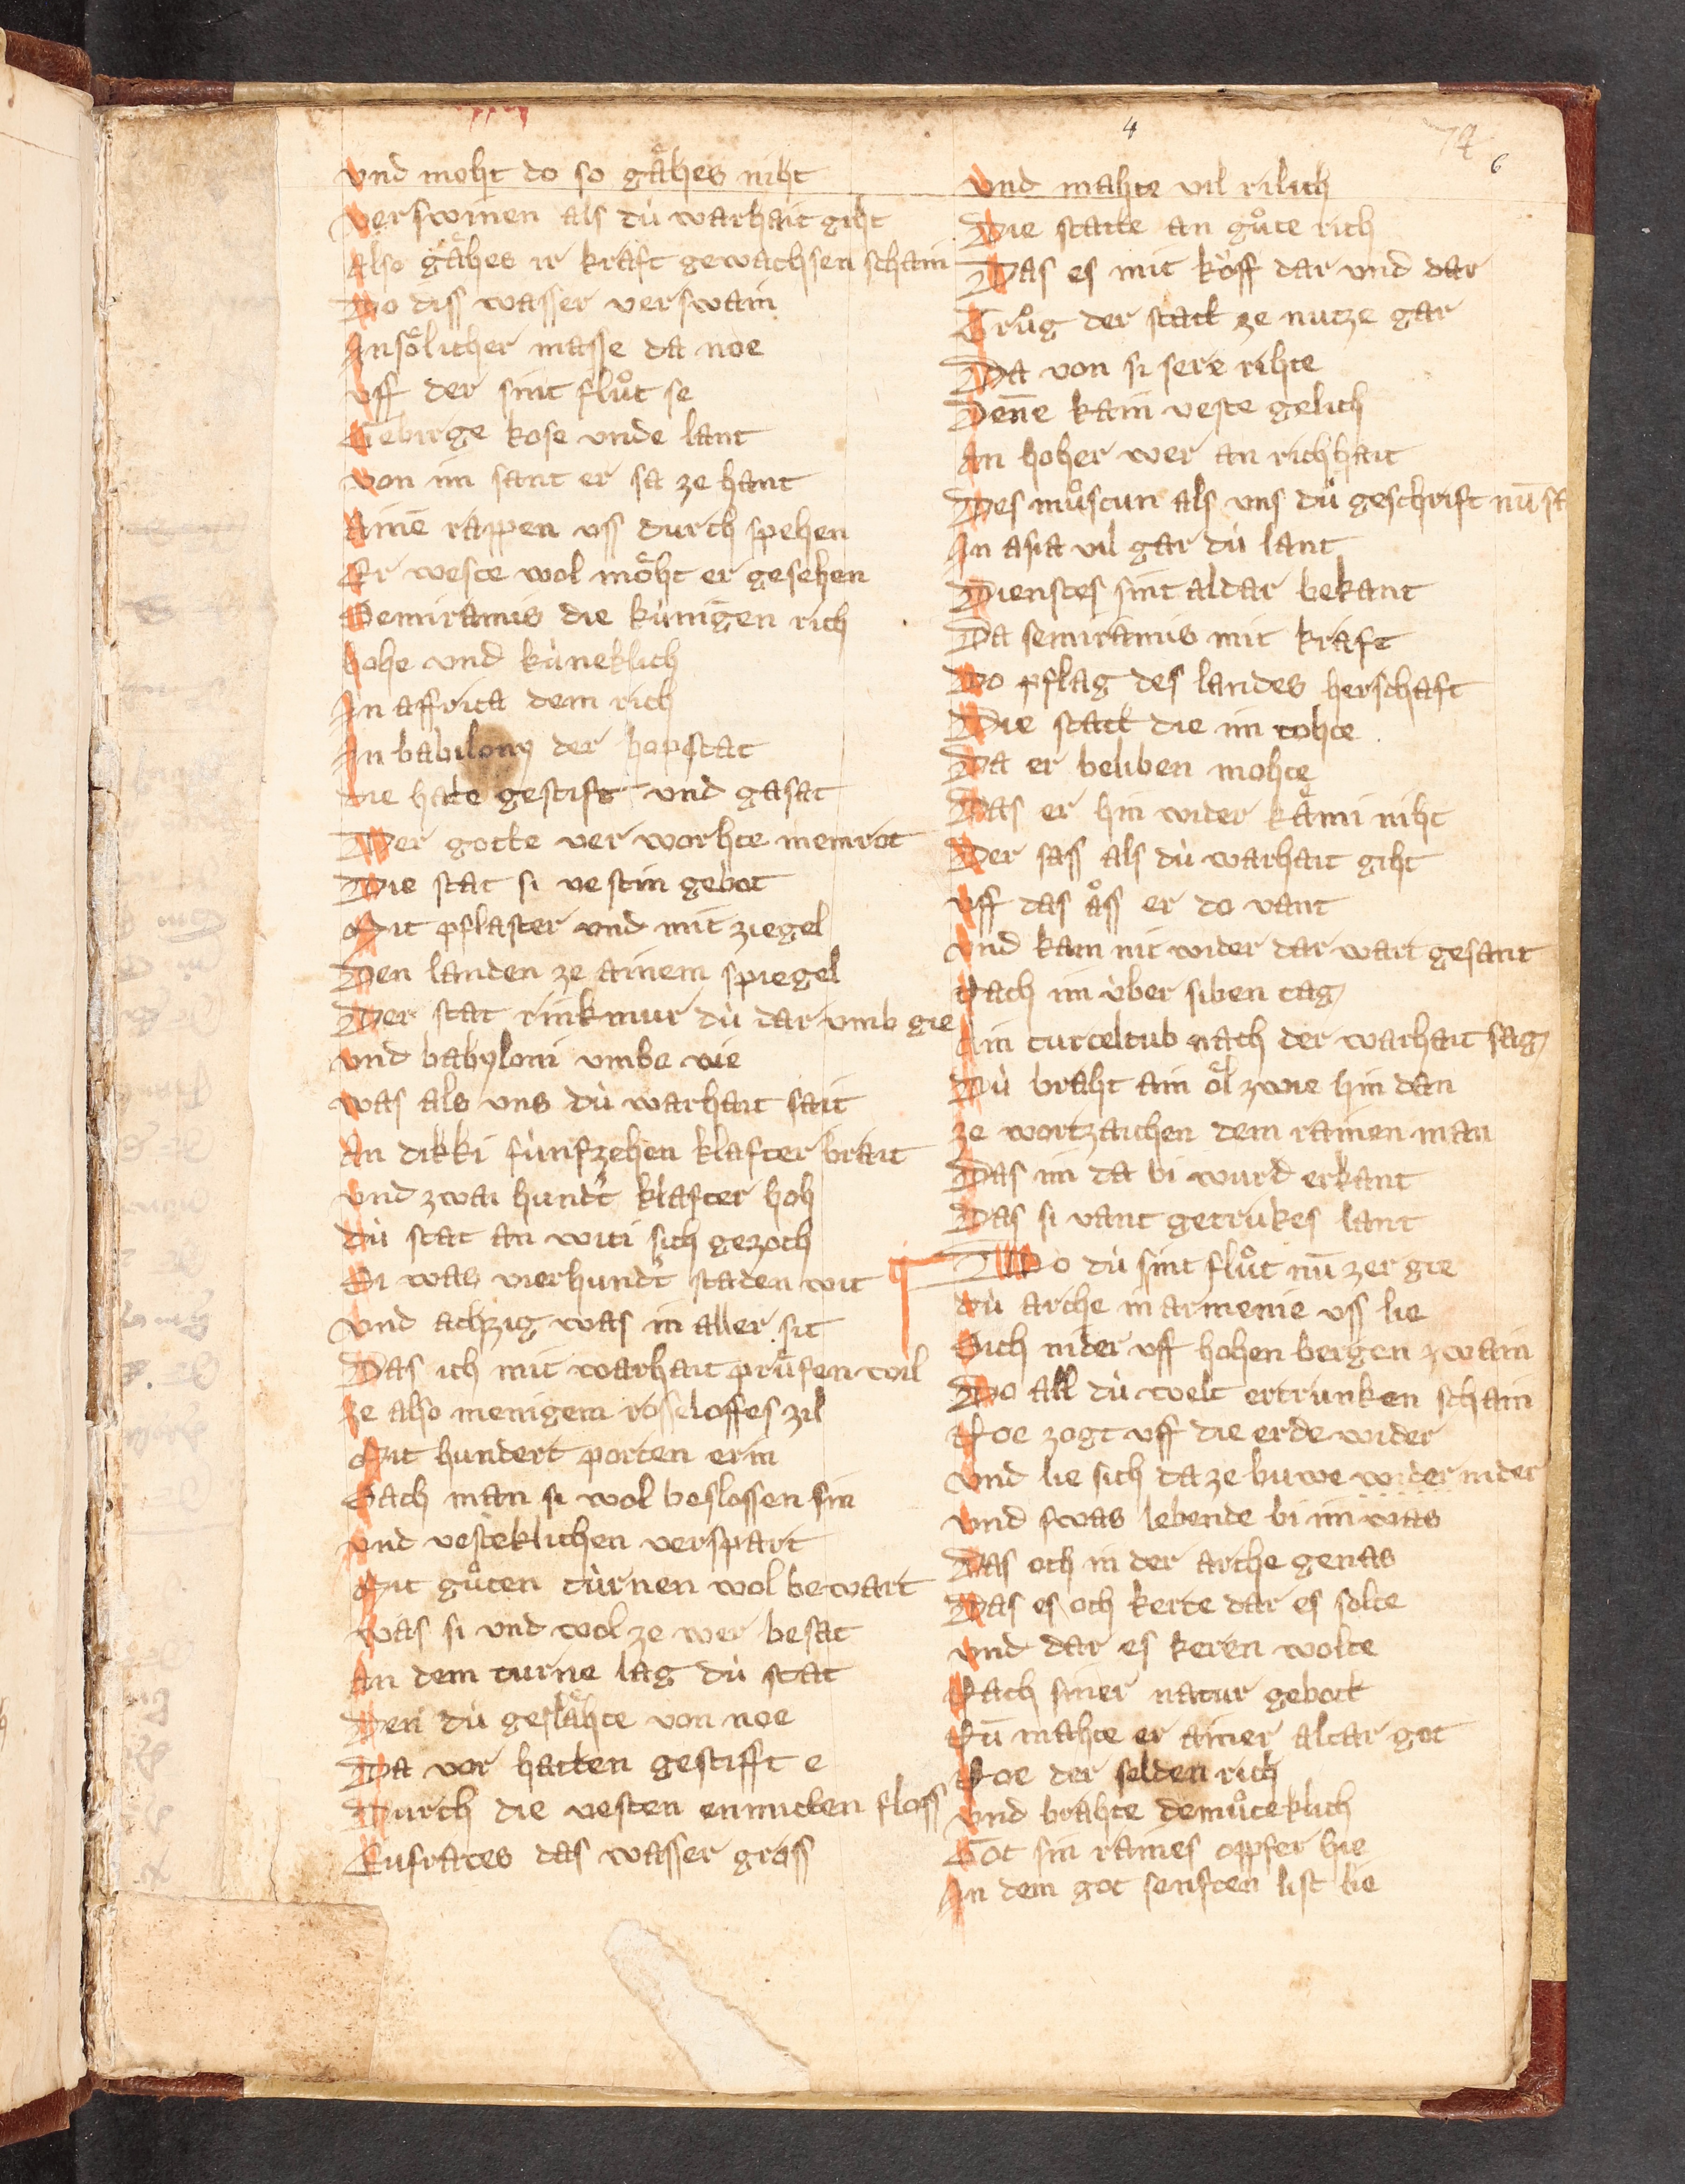 4
74
6
Vnd moht do so gaͤhes niht
Verswinen als dù warhait giht
Also gaͤhes ir kraft gewachsen schain
Do diss wasser verswain
In soͤlicher masse da noe
Vff der sint fluͦt se
Gebirge kose vnde lant
Von im sant er sa ze hant
Ainē rappen vss durch spehen
Er weste wol moͤht er gesehen
Semiramis die kùnigen rich
hohe vnd kùneklich
In affrica dem rich
In babilony der hopstat
die hate gestift vnd gasat
Der gotte ver worhte memrot
Die stat si vestin gebot
Mit pflaster vnd mit ziegel
Den landen ze ainem spiegel
Der stat rinkmur dù dar vmb gie
Vnd babyloni vmbe vie
was als vns dù warhait sait
An dikki fùnfzehen klafter brait
Vnd zwai hundt klafter hoh
dù stat an witi sich gezoch
Si was vierhundt staden wit
Vnd achzig was in aller sit
Das ich mit warhait pruͤfen wil
Ze also menigem rosseloffes zil
Mit hundert porten erin
Sach man si wol beslossen sin
vnd vesteklichen verspart
Mit guͦten tùrnen wol bewart
Was si vnd wol ze wer besat
An dem turne lag dù stat
Den dù geslaͤhte von noe
Da vor hatten gestifft e
Durch die vesten enmitten floss
Eufrates das wasser gross
Vnd mahte vil rilich
Die statte an guͦte rich
Das es mit koͤff dar vnd dar
Truͦg der statt ze nutze gar
Da von si sere rihte
Denne kain veste gelich
An hoher wer an richhait
Des muͦstun als vns dù geschrift nū sa
In asia vil gar dù lant
Dienstes sint aldar bekant
Da semiramis mit kraft
Do pflag des landes herschaft
Die statt die im tohte
Da er beliben mohte
Das er hin wider kaͤmi niht
Der sass als dù warhait giht
Vff das aͦss er do vant
Vnd kam nit wider dar wart gesant
Nach im ùber siben tag
Ain turteltub nach der warhait sag
Dù braht ain oͤl zwie hin dan
ze wortzaichen dem rainen man
Das im da bi wurd erkant
Das si vant getrukes lant
Do dù sint fluͦt nū zer gie
dù arche in armenie vss lie
Sich nider vff hohen bergen zwain
Do all dù welt ertrunken schain
Noe zogt vff die erde wider
Vnd lie sich da ze buwe wider nider
Vnd swas lebende bi im was
Das och in der arche genas
Das es och kerte dar es solte
Vnd dar es keren wolte
Nach siner natur gebott
Nū mahte er ainer altar got
Noe der selden rich
Vnd brahte demuͦteklich
Got sin raines opfer hie
In dem got senften list lie